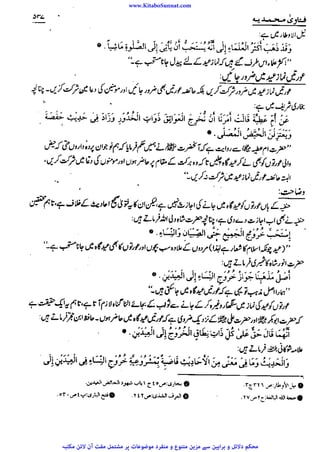 www.KitaboSunnat.com
فتاویٰ محمدیہ 537
نیل الاوطار میں ہے:
وَقَدْ ذَهَبَ أَكْثَرُ الْعُلَمَاءِ إِلَى أَنَّهُ يُسْتَحَبُّ أَنْ يَأْتِيَ إِلَى الصَّلٰوةِ مَاشِيًا.
"اکثر علماء اس طرف گئے ہیں کہ نماز عید کے لئے پیدل جانا مستحب ہے۔"
عورتیں نماز عید میں ضرور جائیں:
عورتیں نماز عید میں ضرور شرکت کریں بلکہ حائضہ عورتیں بھی ضرور جائیں اور مومنین کی دعا میں شرکت کریں۔ چنانچہ
بخاری شریف میں ہے:
عَنْ أُمِّ عَطِيَّةَ قَالَتْ أَمَرَنَا أَنْ نُخْرِجَ الْعَوَاتِقَ ذَوَاتِ الْخُدُورِ وَزَادَ فِي حَدِيثِ حَفْصَةَ
وَيَعْتَزِلْنَ الْحُيَّضُ الْمُصَلَّى.
"حضرت ام عطیہ سے روایت ہے کہ حضرت نے ہمیں حکم فرمایا کہ ہم جوان پردہ دار عورتوں حتی کہ حیض
والی عورتوں کو بھی لے کر عیدگاہ جائیں تاکہ وہ برکت کے مقام پر حاضر ہوں اور مومنوں کی دعا میں شرکت کریں۔
البتہ حائضہ عورتیں نماز میں شرکت نہ کریں۔"
وضاحت:
حنفیہ کے ہاں عورتوں کو عیدگاہ میں جانے کی اجازت نہیں ہے، لیکن ان کا یہ فتویٰ صحیح احادیث کے خلاف ہے، تاہم محققین
حنفیہ نے بھی اب اجازت دے دی ہے، چنانچہ حضرت شاہ ولی اللہ فرماتے ہیں:
اسْتَحَبَّ خُرُوجُ الْجَمِيعِ حَتَّى الصِّبْيَانِ وَالنِّسَاءِ.
"(عید چونکہ اسلام کا شعار ہے لہٰذا) مردوں کے علاوہ سب بچوں اور عورتوں کا بھی عیدگاہ میں جانا مستحب ہے۔"
حضرت انور شاہ کاشمیری فرماتے ہیں:
أَصْلُ مَذْهَبِنَا جَوَازُ خُرُوجِ النِّسَاءِ إِلَى الْعِيدَيْنِ.
"ہمارا اصل مذہب تو یہی ہے کہ عورتیں عیدگاہ میں جا سکتی ہیں۔"
عورتوں کو عیدگاہ کی نماز میں سنگھار وغیرہ کر کے جانے سے ثواب کے بجائے الٹا گناہ لازم آتا ہے، تاہم یہ ایک حقیقت ہے
کہ حضرت ابوبکر اور حضرت علی کے نزدیک ضروری ہے کہ عورتیں عیدگاہ میں حاضر ہوں۔ حافظ ابن حجر فرماتے ہیں:
أَنَّهُمَا قَالَ حَقٌّ عَلَى كُلِّ ذَاتِ نِطَاقٍ الْخُرُوجُ إِلَى الْعِيدَيْنِ.
علامہ شوکانی فرماتے ہیں:
وَالْحَدِيثُ وَمَا فِي مَعْنَى مِنَ الْأَحَادِيثِ قَاضِيَةٌ بِمَشْرُوعِيَّةِ خُرُوجِ النِّسَاءِ فِي الْعِيدَيْنِ إِلَى
نیل الاوطار: ص ٣٢٦ ج٣۔ بخاری: ص ٤٥ ج ١ باب شهود الحائض العيدين.
حجة الله البالغة: ج ٢ ص ٢٧. العرف الشذی: ص ٢٤٢. فتح الباری: ج ٢ ص ٥٣٠.
محکم دلائل و براہین سے مزین متنوع و منفرد موضوعات پر مشتمل مفت آن لائن مکتبہ